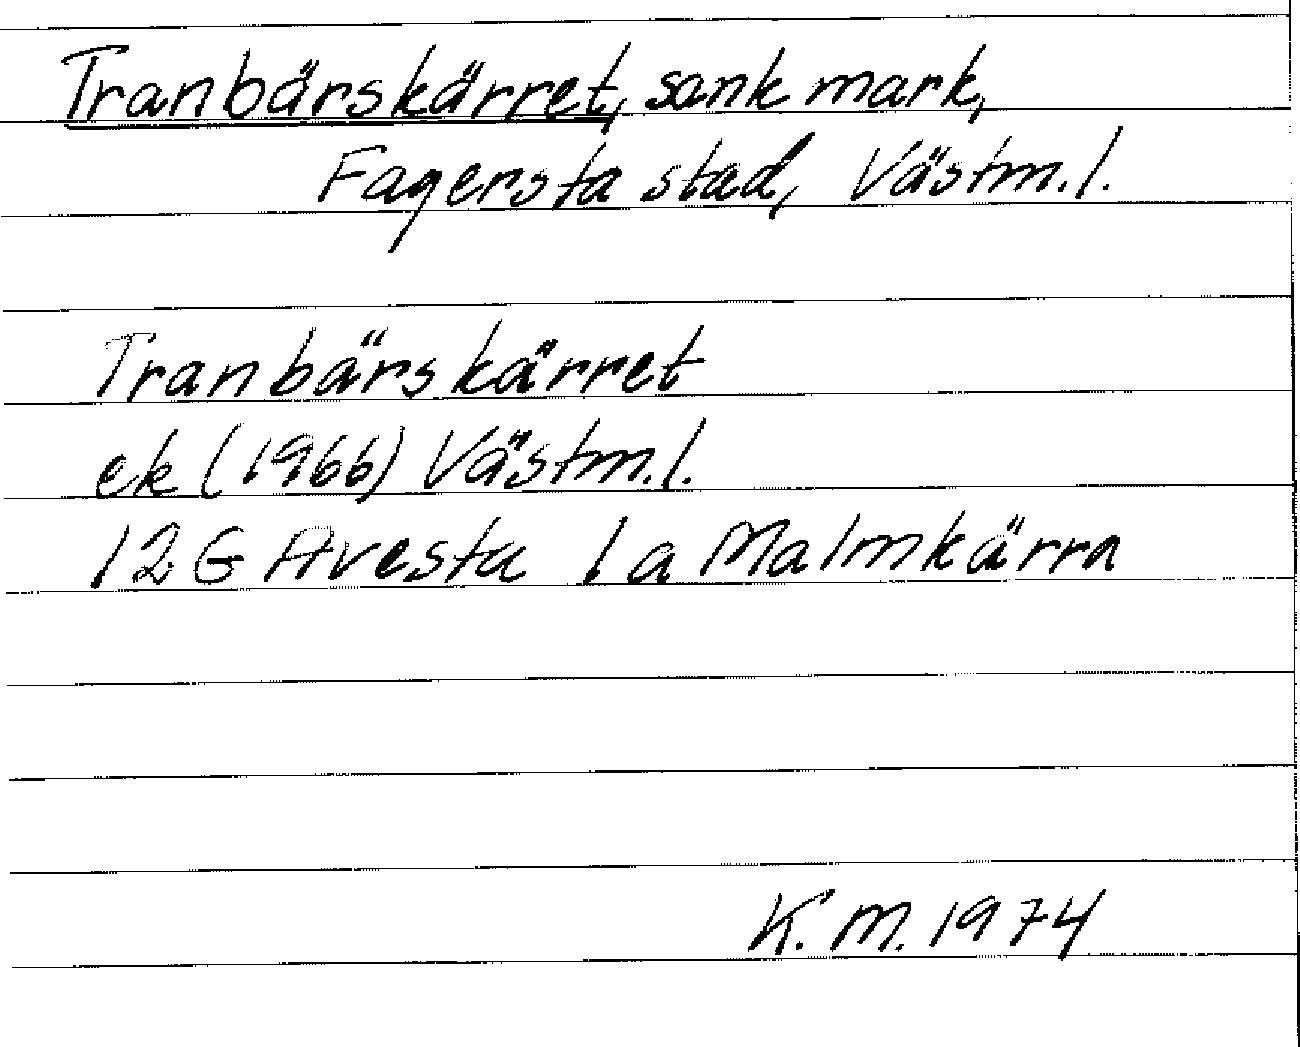 Tranbärskärret, sank mark,
Fagersta stad, Västm.l.
Tranbärskärret
ek (1966) Västm.l.
12 G Avesta 1 a Malmkärra
K.M. 1974